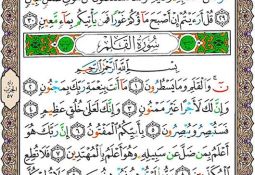 قُلْ أَرَءَيْتُمْ إِنْ أَصْبَحَ مَآؤُكُمْ غَوْرًا فَمَن يَأْتِيكُم بِمَآءٍ مَّعِينٍ ٣٠
سُورَةُ الْقَلَمِ
بِسْمِ اللَّهِ الرَّحْمَٰنِ الرَّحِيمِ
نٓ ۚ وَالْقَلَمِ وَمَا يَسْطُرُونَ ١ مَآ أَنتَ بِنِعْمَةِ رَبِّكَ بِمَجْنُونٍ ٢
وَإِنَّ لَكَ لَأَجْرًا غَيْرَ مَمْنُونٍ ٣ وَإِنَّكَ لَعَلَىٰ خُلُقٍ عَظِيمٍ ٤
فَسَتُبْصِرُ وَيُبْصِرُونَ ٥ بِأَييِّكُمُ الْمَفْتُونُ ٦ إِنَّ رَبَّكَ هُوَ
أَعْلَمُ بِمَن ضَلَّ عَن سَبِيلِهِ وَهُوَ أَعْلَمُ بِالْمُهْتَدِينَ ٧ فَلَا تُطِعِ